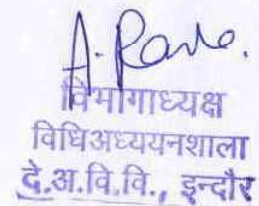 A. Rawle.
विभागाध्यक्ष
विधिअध्ययनशाला
दे.अ.वि.वि., इन्दौर